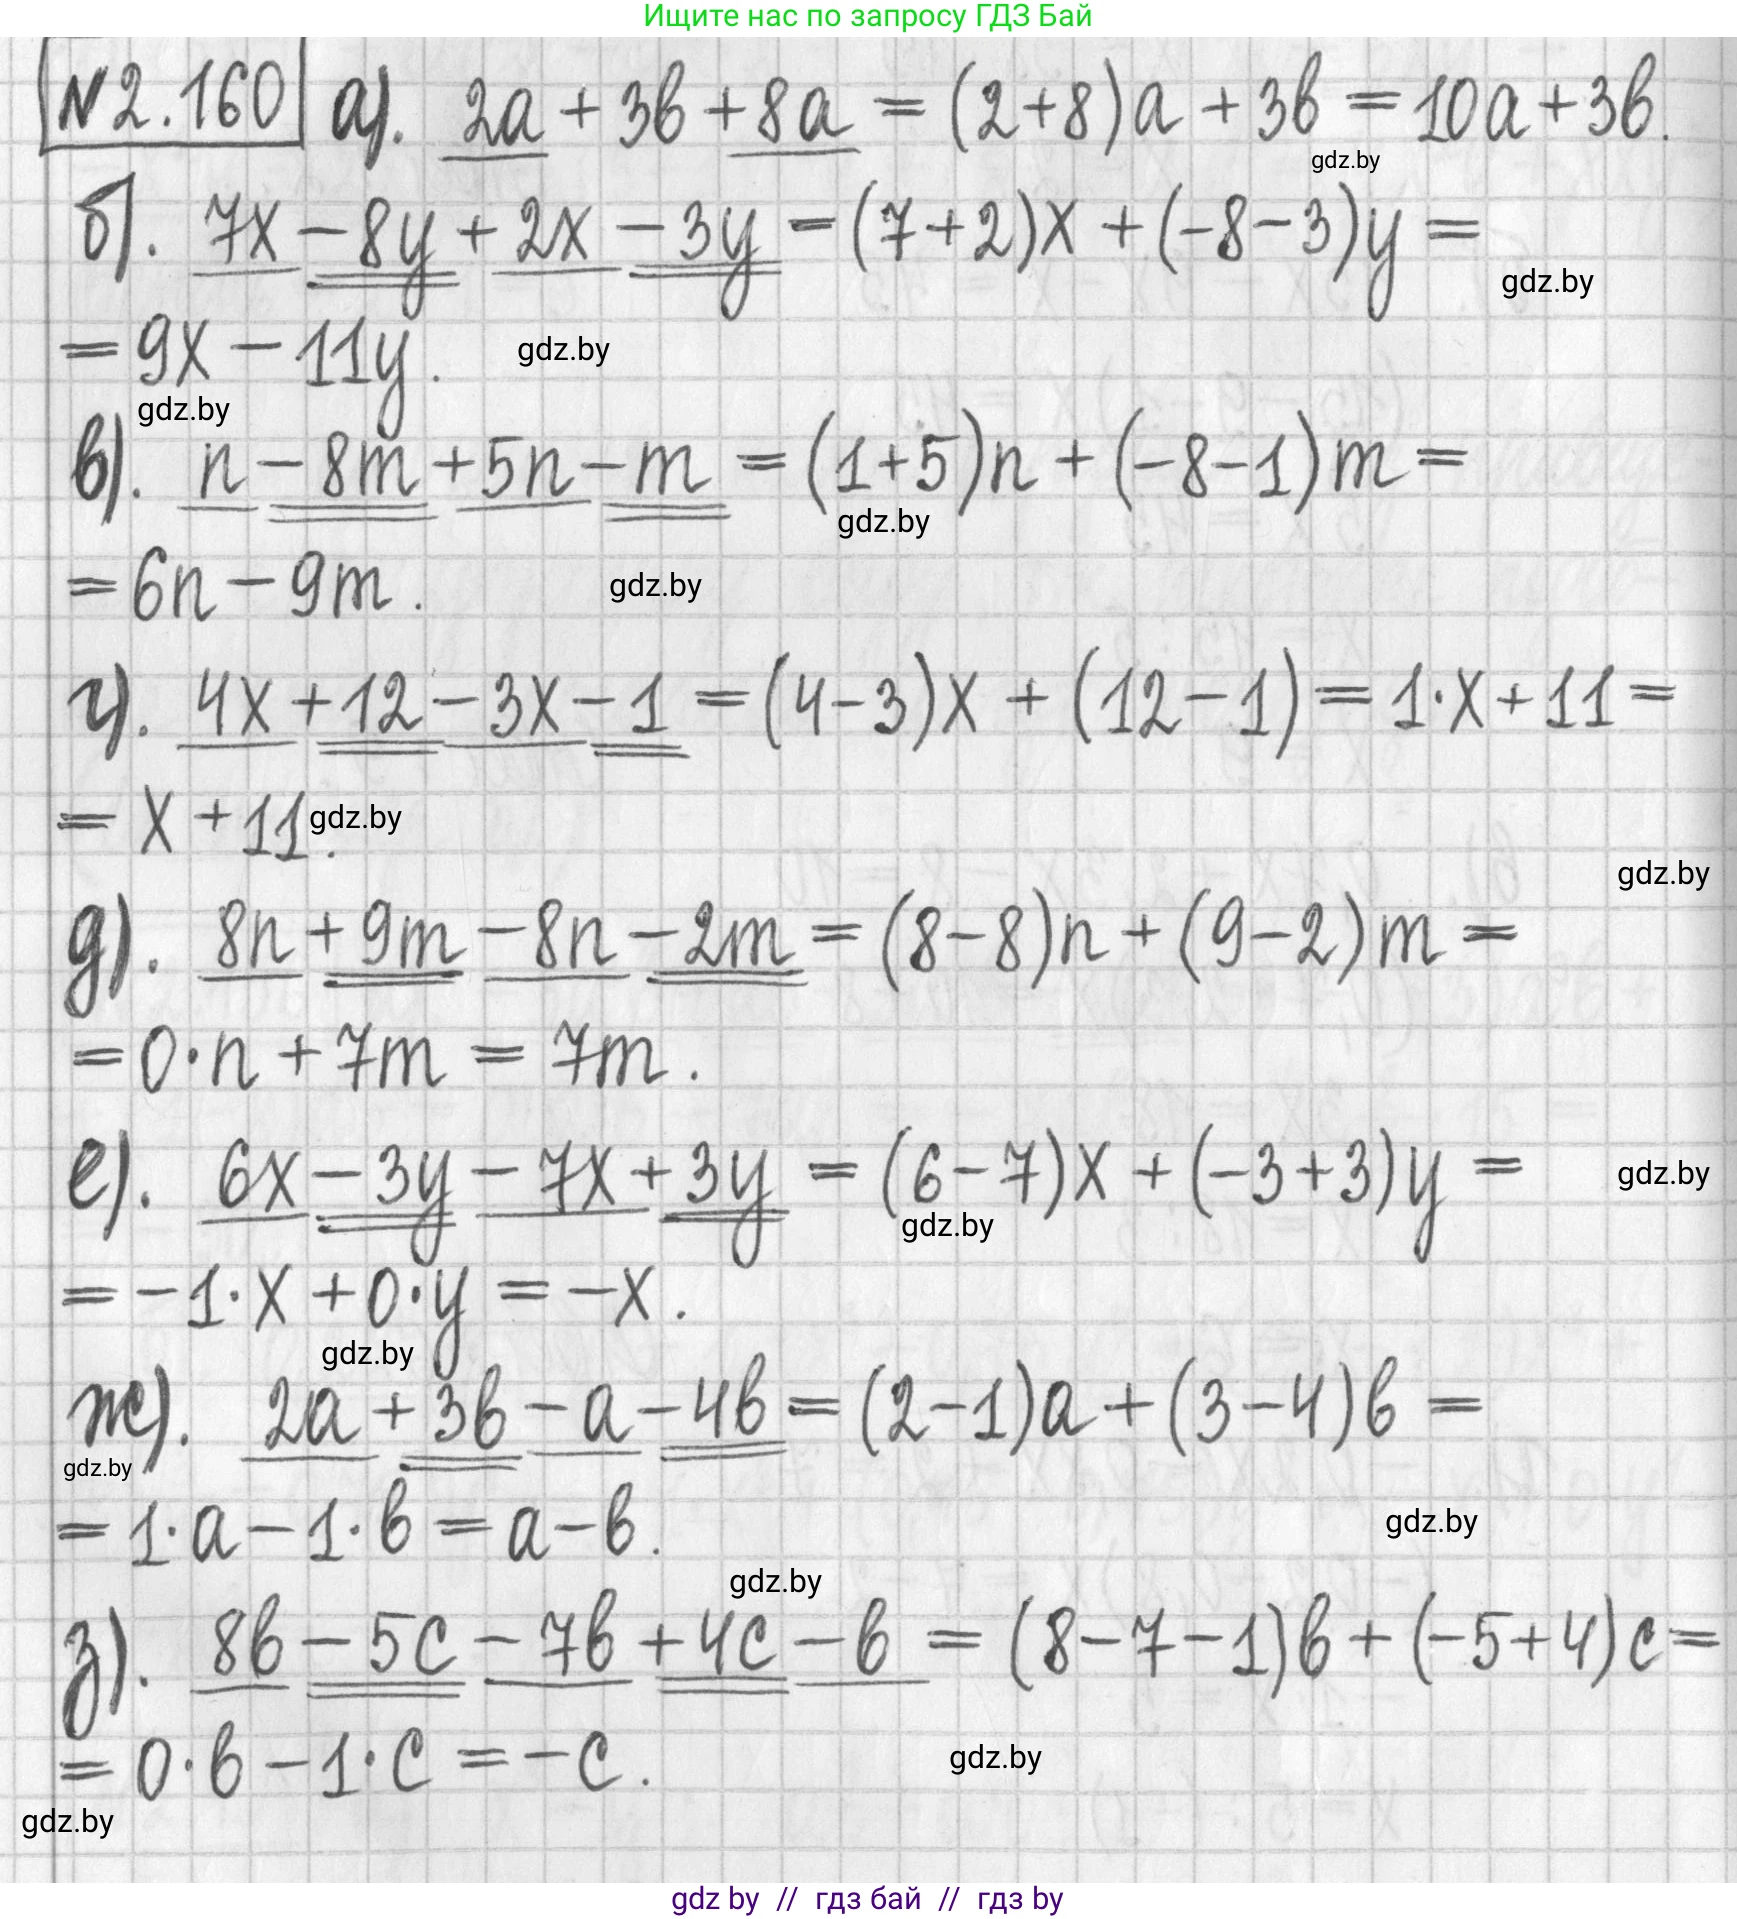 Ищите нас по запросу ГДЗ Бай
N2.160 а). 2a + 3b + 8a = (2+8)a + 3b = 10a + 3b.
gdz.by
б). 7x - 8y + 2x - 3y = (7+2)x + (-8-3)y =
gdz.by
= 9x - 11y.
gdz.by
gdz.by
в). n - 8m + 5n - m = (1+5)n + (-8-1)m =
gdz.by
= 6n - 9m.
gdz.by
г). 4x + 12 - 3x - 1 = (4-3)x + (12-1) = 1·x + 11 =
= x + 11.
gdz.by
gdz.by
д). 8n + 9m - 8n - 2m = (8-8)n + (9-2)m =
= 0·n + 7m = 7m.
е). 6x - 3y - 7x + 3y = (6-7)x + (-3+3)y =
gdz.by
gdz.by
= -1·x + 0·y = -x.
gdz.by
ж). 2a + 3b - a - 4b = (2-1)a + (3-4)b =
gdz.by
= 1·a - 1·b = a - b.
gdz.by
gdz.by
з). 8b - 5c - 7b + 4c - b = (8-7-1)b + (-5+4)c =
= 0·b - 1·c = -c.
gdz.by
gdz.by
gdz by // гдз бай // гдз by